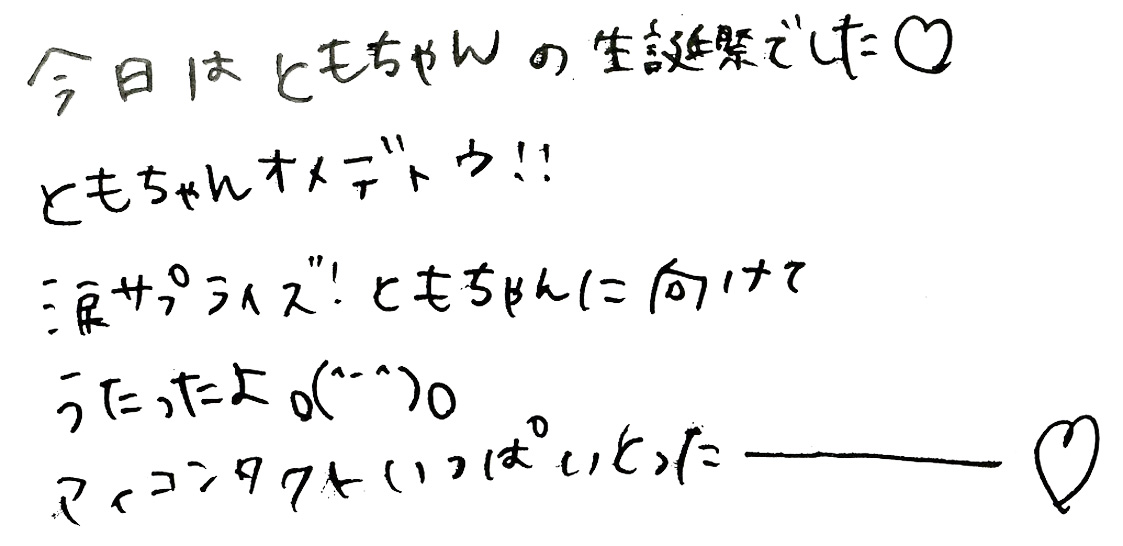 今日はともちゃんの生誕祭でした♡
ともちゃんオメデトウ!!
涙サプライズ!ともちゃんに向けて
うたったよo(^-^)o
アイコンタクトいっぱいとった―――♡